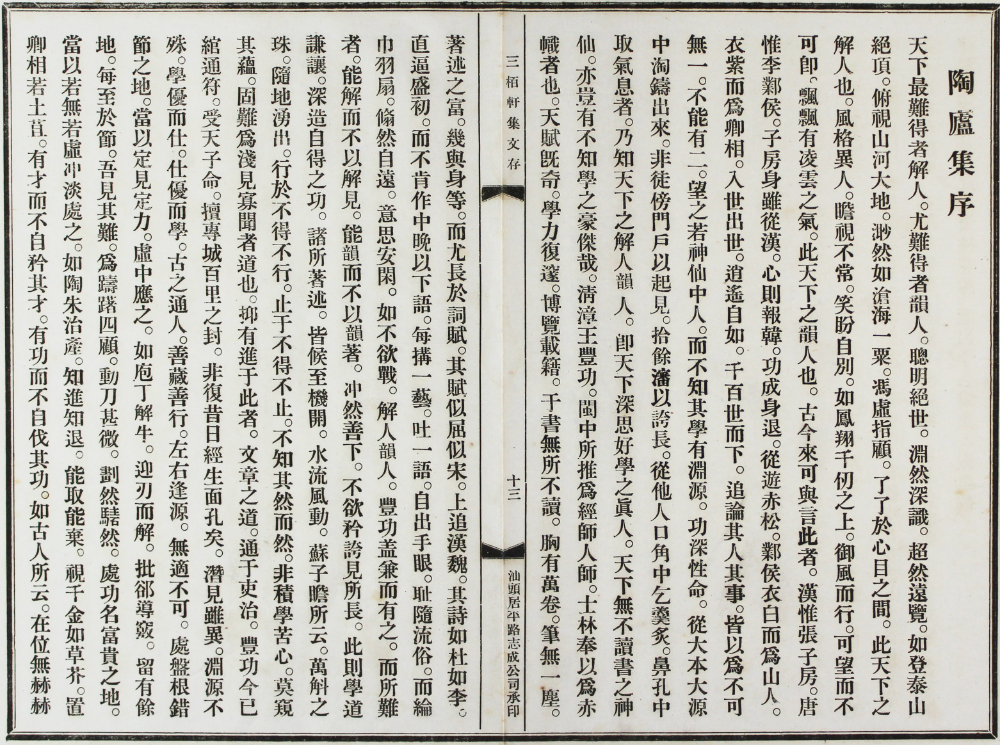 陶廬集序
天下最難得者解人。尤難得者韻人。聰明絕世。淵然深識。超然遠覽。如登泰山
絕頂。俯視山河大地。渺然如滄海一粟。馮虛指顧。了了於心目之間。此天下之
解人也。風格異人。瞻視不常。笑盼自別。如鳳翔千仞之上。御風而行。可望而不
可卽。飄飄有凌雲之氣。此天下之韻人也。古今來可與言此者。漢惟張子房。唐
惟李鄴侯。子房身雖從漢。心則報韓。功成身退。從遊赤松。鄴侯衣白而爲山人。
衣紫而爲卿相。入世出世。逍遙自如。千百世而下。追論其人其事。皆以爲不可
無一。不能有二。望之若神仙中人。而不知其學有淵源。功深性命。從大本大源
中淘鑄出來。非徒傍門戶以起見。拾餘瀋以誇長。從他人口角中乞羹炙。鼻孔中
取氣息者。乃知天下之解人韻人。卽天下深思好學之眞人。天下無不讀書之神
仙。亦豈有不知學之豪傑哉。淸漳王豐功。閩中所推爲經師人師。士林奉以爲赤
幟者也。天賦旣奇。學力復邃。博覽載籍。于書無所不讀。胸有萬卷。筆無一塵。
三栢軒集文存
十三
汕頭居平路志成公司承印
著述之富。幾與身等。而尤長於詞賦。其賦似屈似宋。上追漢魏。其詩如杜如李。
直逼盛初。而不肯作中晚以下語。每搆一藝。吐一語。自出手眼。恥隨流俗。而綸
巾羽扇。翛然自遠。意思安閑。如不欲戰。解人韻人。豐功盖兼而有之。而所難
者。能解而不以解見。能韻而不以韻著。冲然善下。不欲矜誇見所長。此則學道
謙讓。深造自得之功。諸所著述。皆候至機開。水流風動。蘇子瞻所云。萬斛之
珠。隨地湧出。行於不得不行。止于不得不止。不知其然而然。非積學苦心。莫窺
其蘊。固難爲淺見寡聞者道也。抑有進于此者。文章之道。通于吏治。豐功今已
綰通符。受天子命。擅專城百里之封。非復昔日經生面孔矣。潛見雖異。淵源不
殊。學優而仕。仕優而學。古之通人。善藏善行。左右逢源。無適不可。處盤根錯
節之地。當以定見定力。虛中應之。如庖丁解牛。迎刃而解。批郤導窾。留有餘
地。每至於節。吾見其難。爲躊躇四顧。動刀甚微。劃然騞然。處功名富貴之地。
當以若無若虛冲淡處之。如陶朱治產。知進知退。能取能棄。視千金如草芥。置
卿相若土苴。有才而不自矜其才。有功而不自伐其功。如古人所云。在位無赫赫